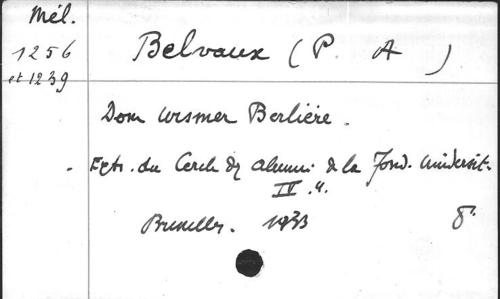 Mél.
1256
et 1239
Belvaux (P. A )
Dom Ursmer Berlière.
Extr. du Cercle des Alumni de la Fond. Universit.
IV. 4.
Bruxelles. 1933 8°